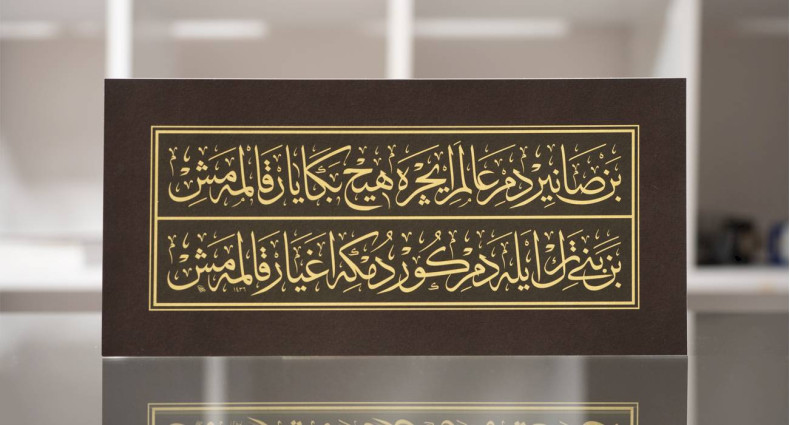 بن صانيردم عالم ايچره هيچ بكا يار قالمه مش
بن بنى ترك ايله دم كوردمكه اغيار قالمه مش